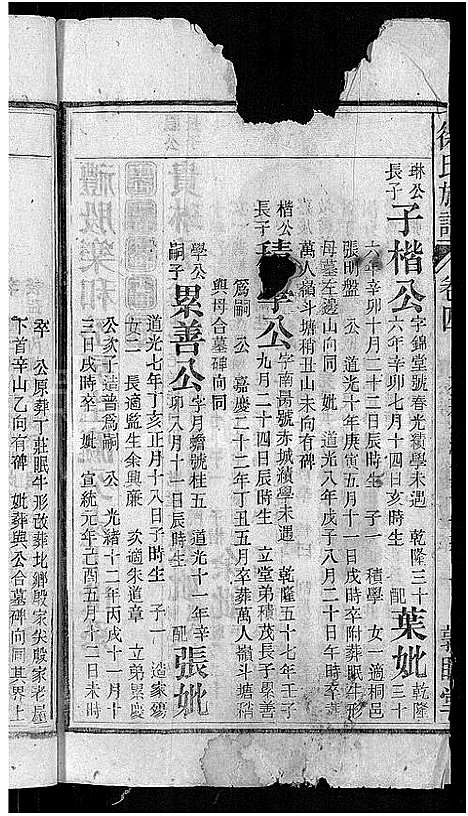 徐氏族譜
卷四
敦睦堂
琳公
長子
子楷公
字錦堂號春光績學未遇 乾隆三十
六年辛卯七月十四日亥時生
配
葉妣
乾隆
三十
六年辛卯十月二十二日辰時生 子一 積學 女一適桐邑
張明盤 公 道光十年庚寅五月十一日戌時卒附葬眠牛形
母墓左邊山向同 妣 道光八年戊子八月二十日午時卒葬
萬人嶺斗塘稍丑山未向有碑
楷公
長子
積學公
字南陽號赤城績學未遇 乾隆五十七年壬子
九月二十四日辰時生 立堂弟積茂長子累善
為嗣 公 嘉慶二十二年丁丑五月卒葬萬人嶺斗塘稍
與母合墓碑向同
學公
嗣子
累善公
字月蟾號桂五 道光十一年辛
卯八月十一日辰時生
配
張妣
道光七年丁亥正月十八日子時生 子一 造家殤
女二 長適監生余興廉 次適朱道章 立弟累慶
公次子造普為嗣 公 光緒十二年丙戌十一月十
三日戌時卒 妣 宣統元年己酉五月十二日未時
卒 公原葬丁莊眠牛形改葬北鄉殷家尖殷家老屋
下首辛山乙向有碑 妣葬與公合墓碑向同其界上